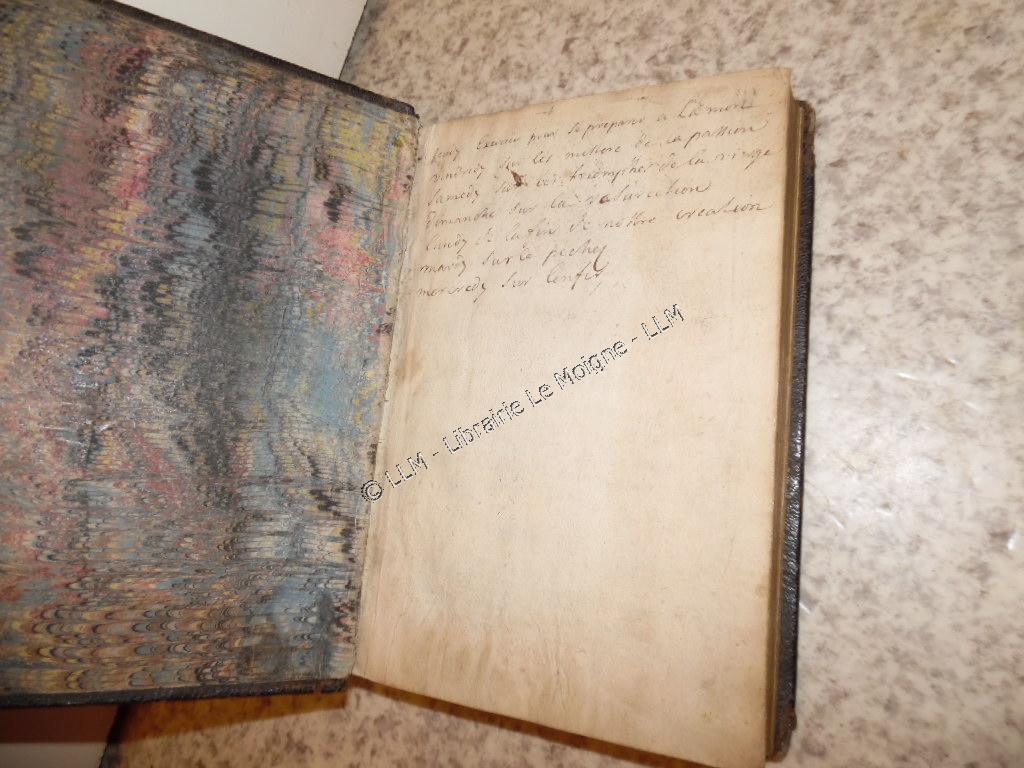 jeudy Exercice pour se preparer a La mort
vendredy sur les mistere de la passion
samedy sur les triomphes de la vierge
Dimanche sur la resurection
Lundy de la fin de nottre creation
mardy sur le peche
mercredy sur lenfer
© LLM - Librairie Le Moigne - LLM